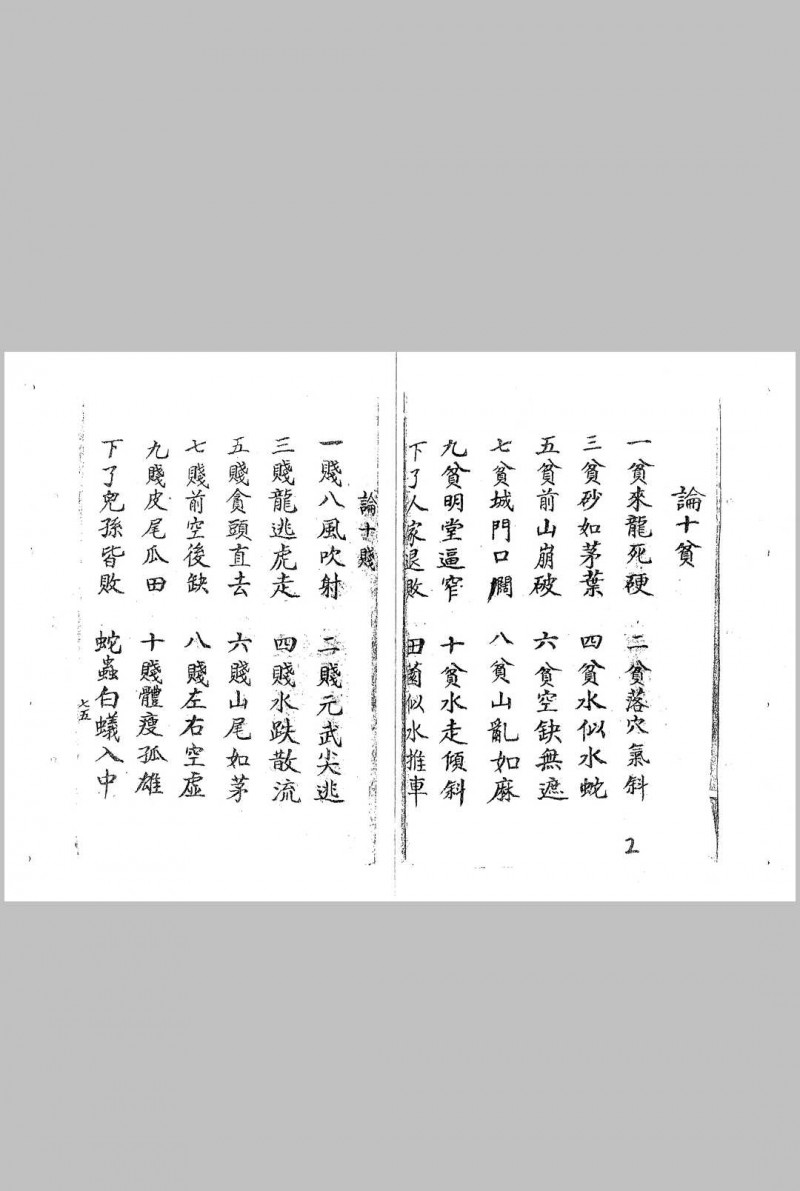 論十貧
一貧來龍死硬　二貧落穴氣斜
三貧砂如茅葉　四貧水似水蛇
五貧前山崩破　六貧空缺無遮
七貧城門口闊　八貧山亂如麻
九貧明堂逼窄　十貧水走傾斜
下了人家退敗　田蓾似水推車
2
論十賤
一賤八風吹射　二賤元武尖逃
三賤龍逃虎走　四賤水跌散流
五賤貪頭直去　六賤山尾如茅
七賤前空後缺　八賤左右空虛
九賤皮尾瓜田　十賤體瘦孤雄
下了兒孫皆敗　蛇蟲白蟻入中
七五